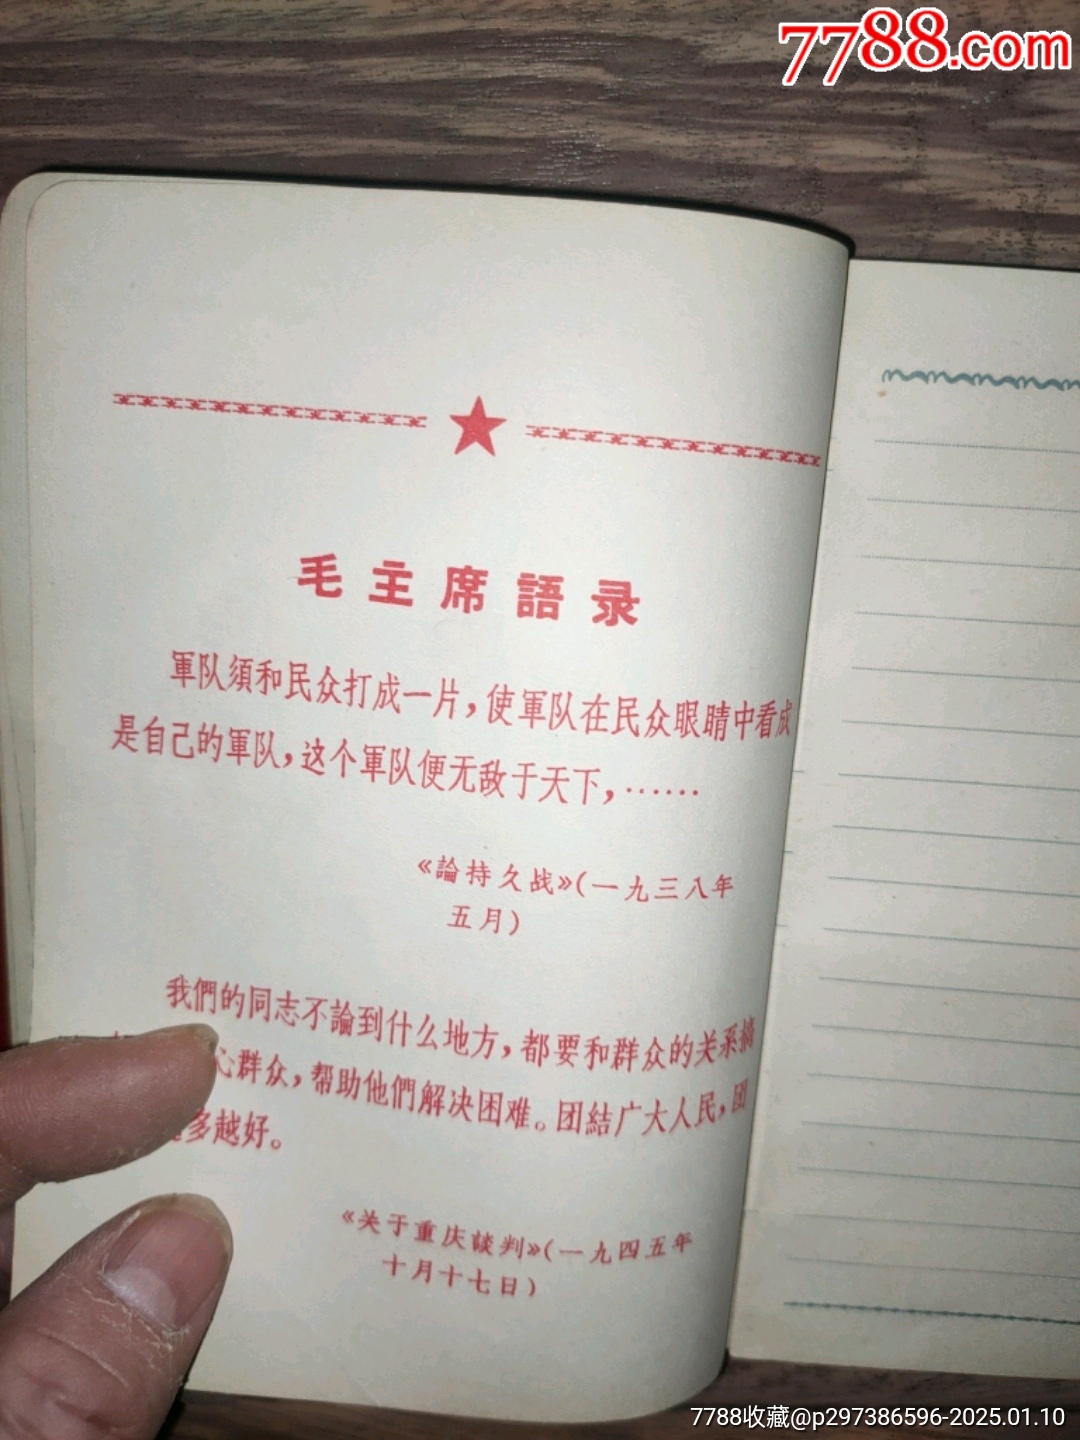 7788.com
毛主席語录
軍队須和民众打成一片，使軍队在民众眼睛中看成
是自己的軍队，这个軍队便无敌于天下，……
《論持久战》(一九三八年
五月)
我們的同志不論到什么地方，都要和群众的关系搞
心群众，帮助他們解决困难。团結广大人民，团
多越好。
《关于重庆談判》(一九四五年
十月十七日)
7788收藏@p297386596-2025.01.10